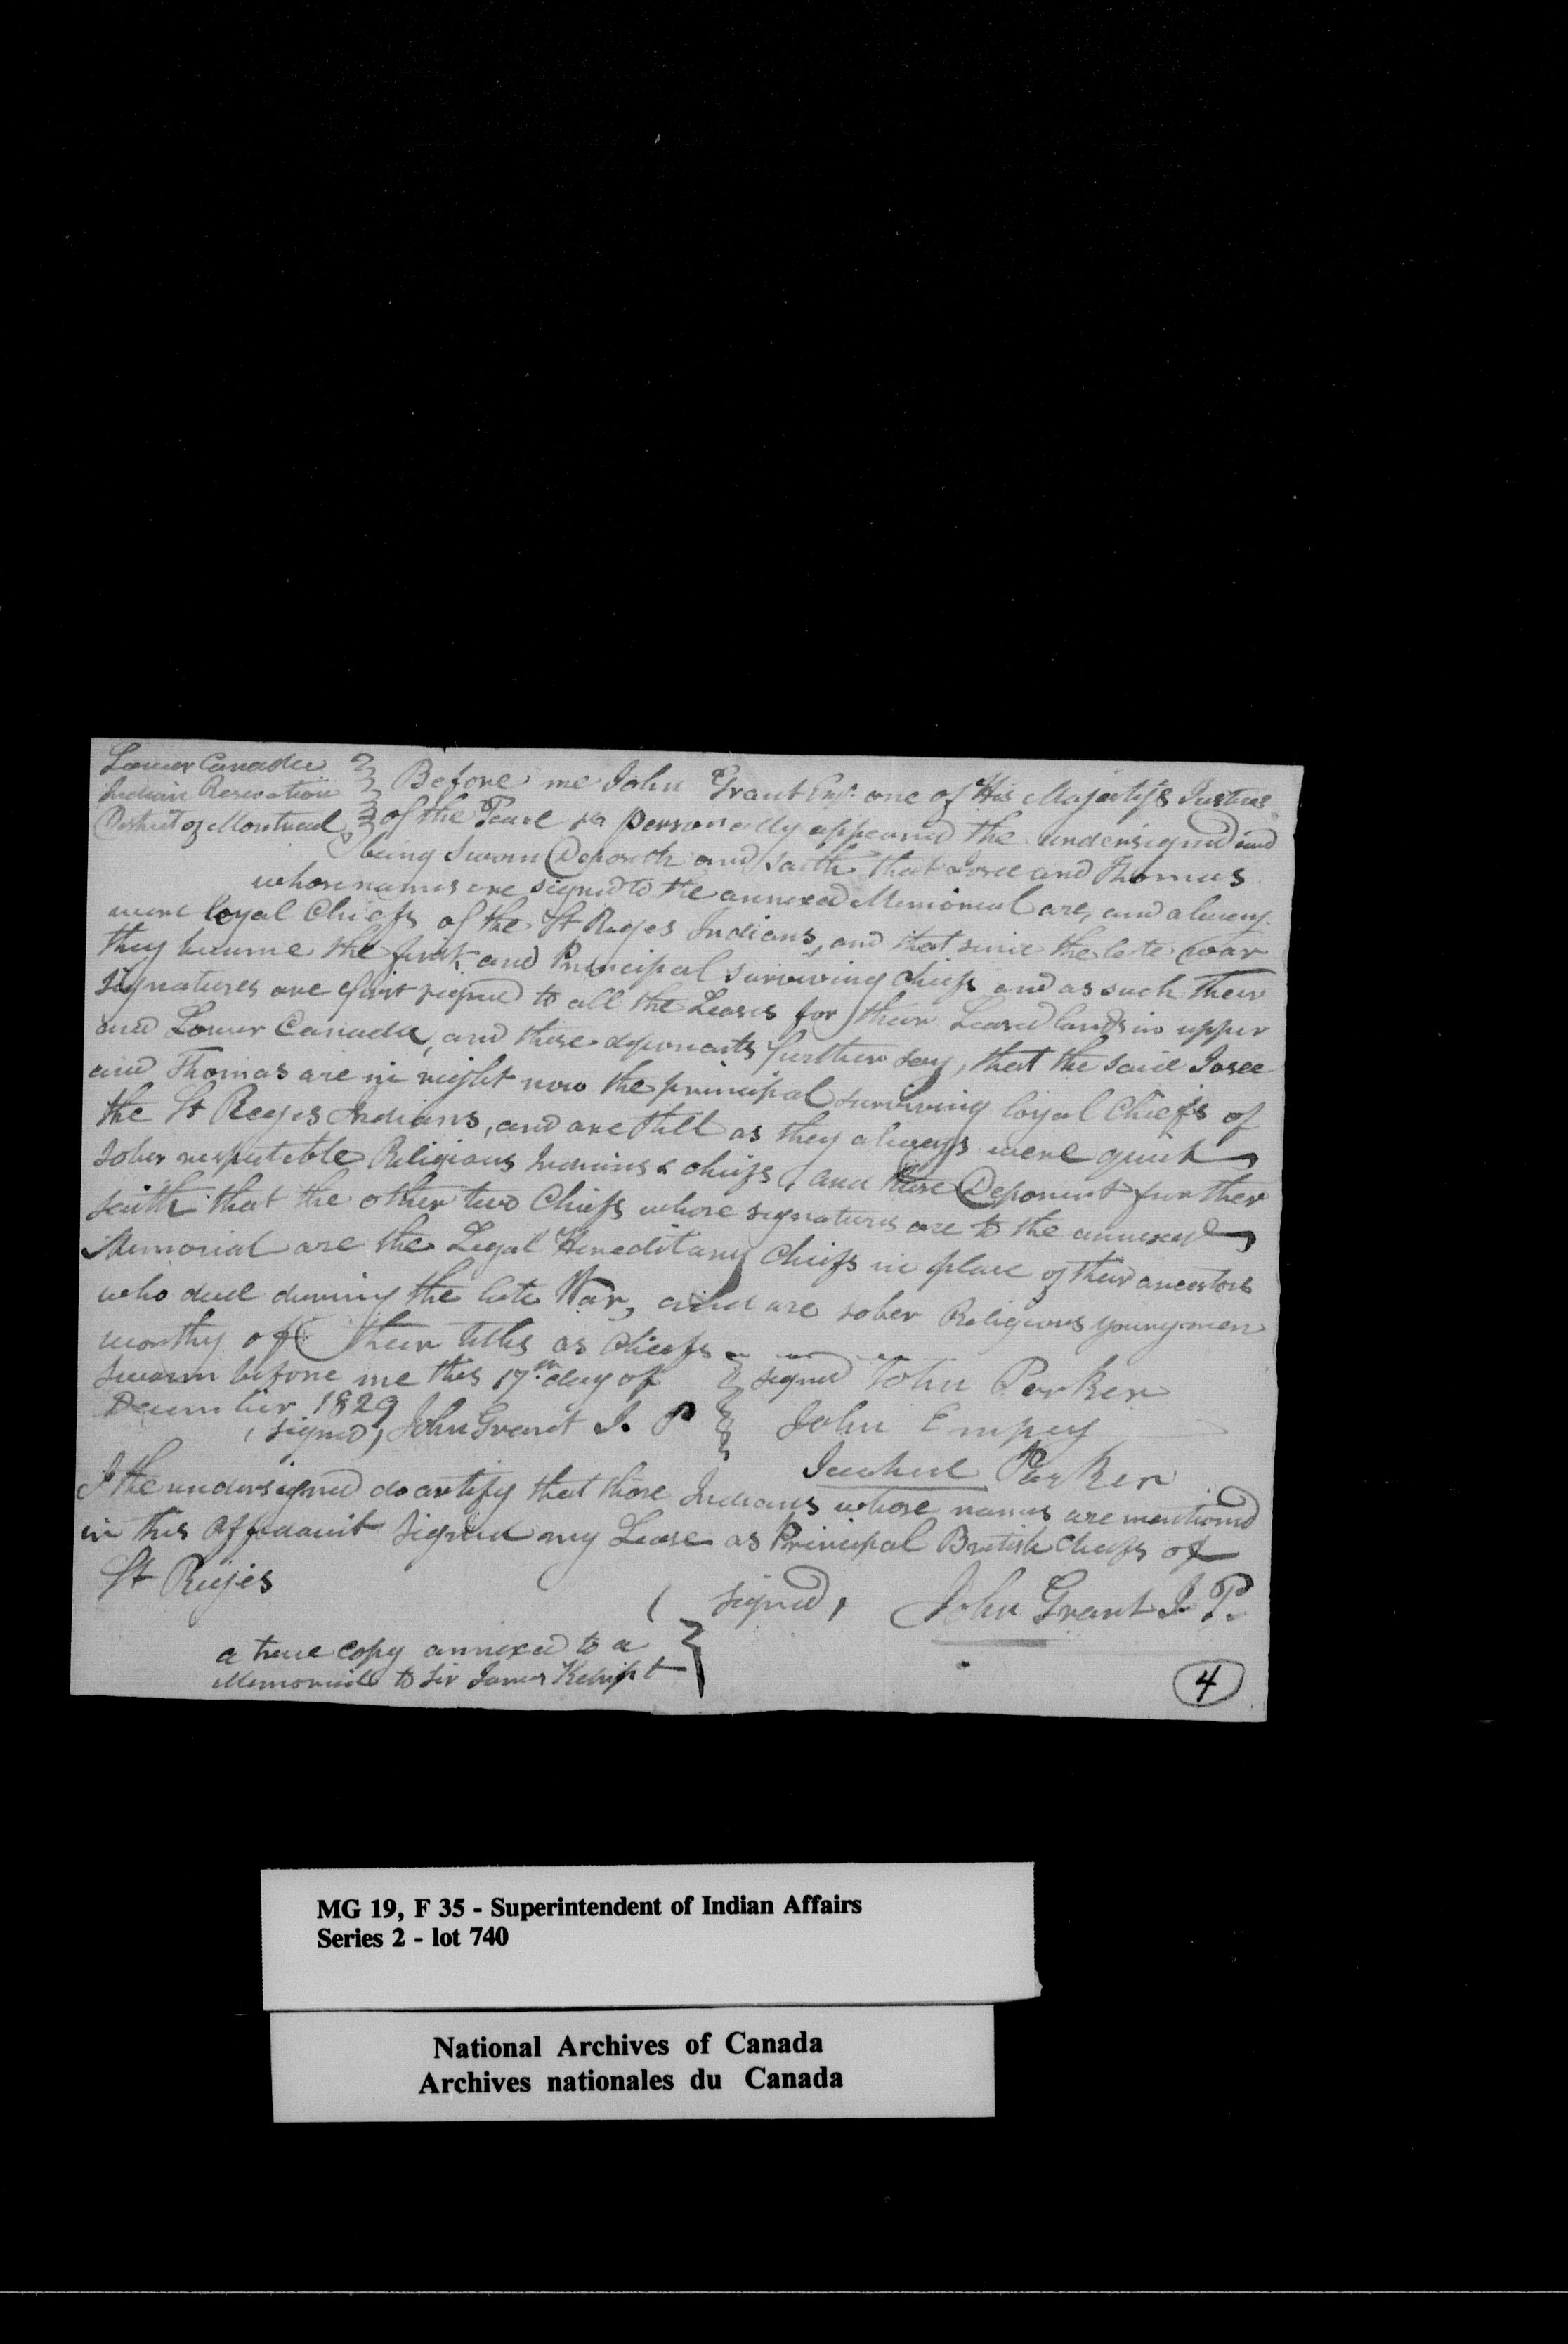 Lower Canada
Indian Reservation
District of Montreal
Before me John Grant Esqr. one of His Majesty's Justices
of the Peace &ca personally appeared the undersigned and
being Sworn Deposeth and saith that Josee and Thomas
whose names are signed to the annexed Memorial are, and always
were loyal Chiefs of the St Regis Indians, and that since the late war
they became the first and Principal surviving chiefs and as such Their
signatures are first signed to all the Leases for their Leased lands in upper
and Lower Canada, and these deponants further say, that the said Josee
and Thomas are in right now the principal surviving loyal Chiefs of
the St Regis Indians, and are still as they always were quiet
sober respectable Religious Indians & chiefs, and these Deponent further
saith that the other two Chiefs whose signatures are to the annexed
Memorial are the Legal Hereditary Chiefs in place of their ancestors
who died during the late War, and are sober Religious young men
worthy of their titles as Chiefs
Sworn before me this 17th day of
December 1829
(signed) John Grant J. P
signed John Parker
John Empey
Parker
I the undersigned do certify that those Indians whose names are mentioned
in this Affidavit signed my Lease as Principal British Chiefs of
St Regis
(signed, John Grant J. P.
a true copy annexed to a
Memorial to Sir James Kempt
4
MG 19, F 35 - Superintendent of Indian Affairs
Series 2 - lot 740
National Archives of Canada
Archives nationales du Canada